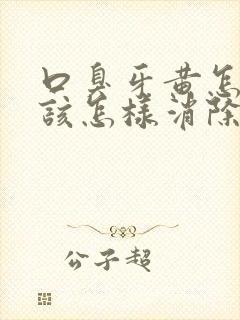 口臭牙黄怎
該怎樣消除
公子超